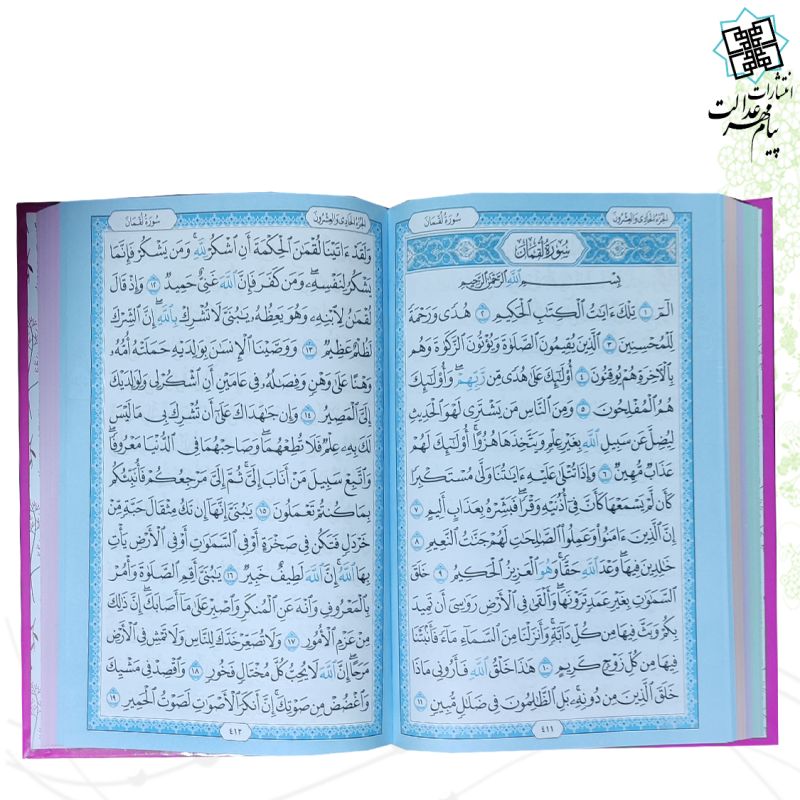 انتشارات
پیام مهر عدالت
الجزء الحادی والعشرون
سورة لقمان
سورة لقمان
بسم الله الرحمن الرحیم
الٓمٓ ١ تِلْكَ ءَايَٰتُ ٱلْكِتَٰبِ ٱلْحَكِيمِ ٢ هُدًى وَرَحْمَةً
لِلْمُحْسِنِينَ ٣ ٱلَّذِينَ يُقِيمُونَ ٱلصَّلَوٰةَ وَيُؤْتُونَ ٱلزَّكَوٰةَ وَهُم
بِٱلْءَاخِرَةِ هُمْ يُوقِنُونَ ٤ أُو۟لَٰٓئِكَ عَلَىٰ هُدًى مِن رَبِّهِمْ ۖ وَأُو۟لَٰٓئِكَ
هُمُ ٱلْمُفْلِحُونَ ٥ وَمِنَ ٱلنَّاسِ مَن يَشْتَرِى لَهْوَ ٱلْحَدِيثِ
لِيُضِلَّ عَن سَبِيلِ ٱللَّهِ بِغَيْرِ عِلْمٍ وَيَتَّخِذَهَا هُزُوًا ۚ أُو۟لَٰٓئِكَ لَهُمْ
عَذَابٌ مُهِينٌ ٦ وَإِذَا تُتْلَىٰ عَلَيْهِ ءَايَٰتُنَا وَلَّىٰ مُسْتَكْبِرًا
كَأَن لَمْ يَسْمَعْهَا كَأَنَّ فِىٓ أُذُنَيْهِ وَقْرًا ۖ فَبَشِّرْهُ بِعَذَابٍ أَلِيمٍ ٧
إِنَّ ٱلَّذِينَ ءَامَنُوا۟ وَعَمِلُوا۟ ٱلصَّٰلِحَٰتِ لَهُمْ جَنَّٰتُ ٱلنَّعِيمِ ٨
خَٰلِدِينَ فِيهَا ۖ وَعْدَ ٱللَّهِ حَقًّا ۚ وَهُوَ ٱلْعَزِيزُ ٱلْحَكِيمُ ٩ خَلَقَ
ٱلسَّمَٰوَٰتِ بِغَيْرِ عَمَدٍ تَرَوْنَهَا ۖ وَأَلْقَىٰ فِى ٱلْأَرْضِ رَوَٰسِىَ أَن تَمِيدَ
بِكُمْ وَبَثَّ فِيهَا مِن كُلِّ دَآبَّةٍ ۚ وَأَنزَلْنَا مِنَ ٱلسَّمَآءِ مَآءً فَأَنۢبَتْنَا
فِيهَا مِن كُلِّ زَوْجٍ كَرِيمٍ ١٠ هَٰذَا خَلْقُ ٱللَّهِ فَأَرُونِى مَاذَا
خَلَقَ ٱلَّذِينَ مِن دُونِهِۦ ۚ بَلِ ٱلظَّٰلِمُونَ فِى ضَلَٰلٍ مُبِينٍ ١١
٤١١
الجزء الحادی والعشرون
سورة لقمان
وَلَقَدْ ءَاتَيْنَا لُقْمَٰنَ ٱلْحِكْمَةَ أَنِ ٱشْكُرْ لِلَّهِ ۚ وَمَن يَشْكُرْ فَإِنَّمَا
يَشْكُرُ لِنَفْسِهِۦ ۖ وَمَن كَفَرَ فَإِنَّ ٱللَّهَ غَنِىٌّ حَمِيدٌ ١٢ وَإِذْ قَالَ
لُقْمَٰنُ لِٱبْنِهِۦ وَهُوَ يَعِظُهُۥ يَٰبُنَىَّ لَا تُشْرِكْ بِٱللَّهِ ۖ إِنَّ ٱلشِّرْكَ
لَظُلْمٌ عَظِيمٌ ١٣ وَوَصَّيْنَا ٱلْإِنسَٰنَ بِوَٰلِدَيْهِ حَمَلَتْهُ أُمُّهُۥ
وَهْنًا عَلَىٰ وَهْنٍ وَفِصَٰلُهُۥ فِى عَامَيْنِ أَنِ ٱشْكُرْ لِى وَلِوَٰلِدَيْكَ
إِلَىَّ ٱلْمَصِيرُ ١٤ وَإِن جَٰهَدَاكَ عَلَىٰٓ أَن تُشْرِكَ بِى مَا لَيْسَ
لَكَ بِهِۦ عِلْمٌ فَلَا تُطِعْهُمَا ۖ وَصَاحِبْهُمَا فِى ٱلدُّنْيَا مَعْرُوفًا ۖ
وَٱتَّبِعْ سَبِيلَ مَنْ أَنَابَ إِلَىَّ ۚ ثُمَّ إِلَىَّ مَرْجِعُكُمْ فَأُنَبِّئُكُم
بِمَا كُنتُمْ تَعْمَلُونَ ١٥ يَٰبُنَىَّ إِنَّهَآ إِن تَكُ مِثْقَالَ حَبَّةٍ مِنْ
خَرْدَلٍ فَتَكُن فِى صَخْرَةٍ أَوْ فِى ٱلسَّمَٰوَٰتِ أَوْ فِى ٱلْأَرْضِ يَأْتِ
بِهَا ٱللَّهُ ۚ إِنَّ ٱللَّهَ لَطِيفٌ خَبِيرٌ ١٦ يَٰبُنَىَّ أَقِمِ ٱلصَّلَوٰةَ وَأْمُرْ
بِٱلْمَعْرُوفِ وَٱنْهَ عَنِ ٱلْمُنكَرِ وَٱصْبِرْ عَلَىٰ مَآ أَصَابَكَ ۖ إِنَّ ذَٰلِكَ
مِنْ عَزْمِ ٱلْأُمُورِ ١٧ وَلَا تُصَعِّرْ خَدَّكَ لِلنَّاسِ وَلَا تَمْشِ فِى ٱلْأَرْضِ
مَرَحًا ۖ إِنَّ ٱللَّهَ لَا يُحِبُّ كُلَّ مُخْتَالٍ فَخُورٍ ١٨ وَٱقْصِدْ فِى مَشْيِكَ
وَٱغْضُضْ مِن صَوْتِكَ ۚ إِنَّ أَنكَرَ ٱلْأَصْوَٰتِ لَصَوْتُ ٱلْحَمِيرِ ١٩
٤١٢